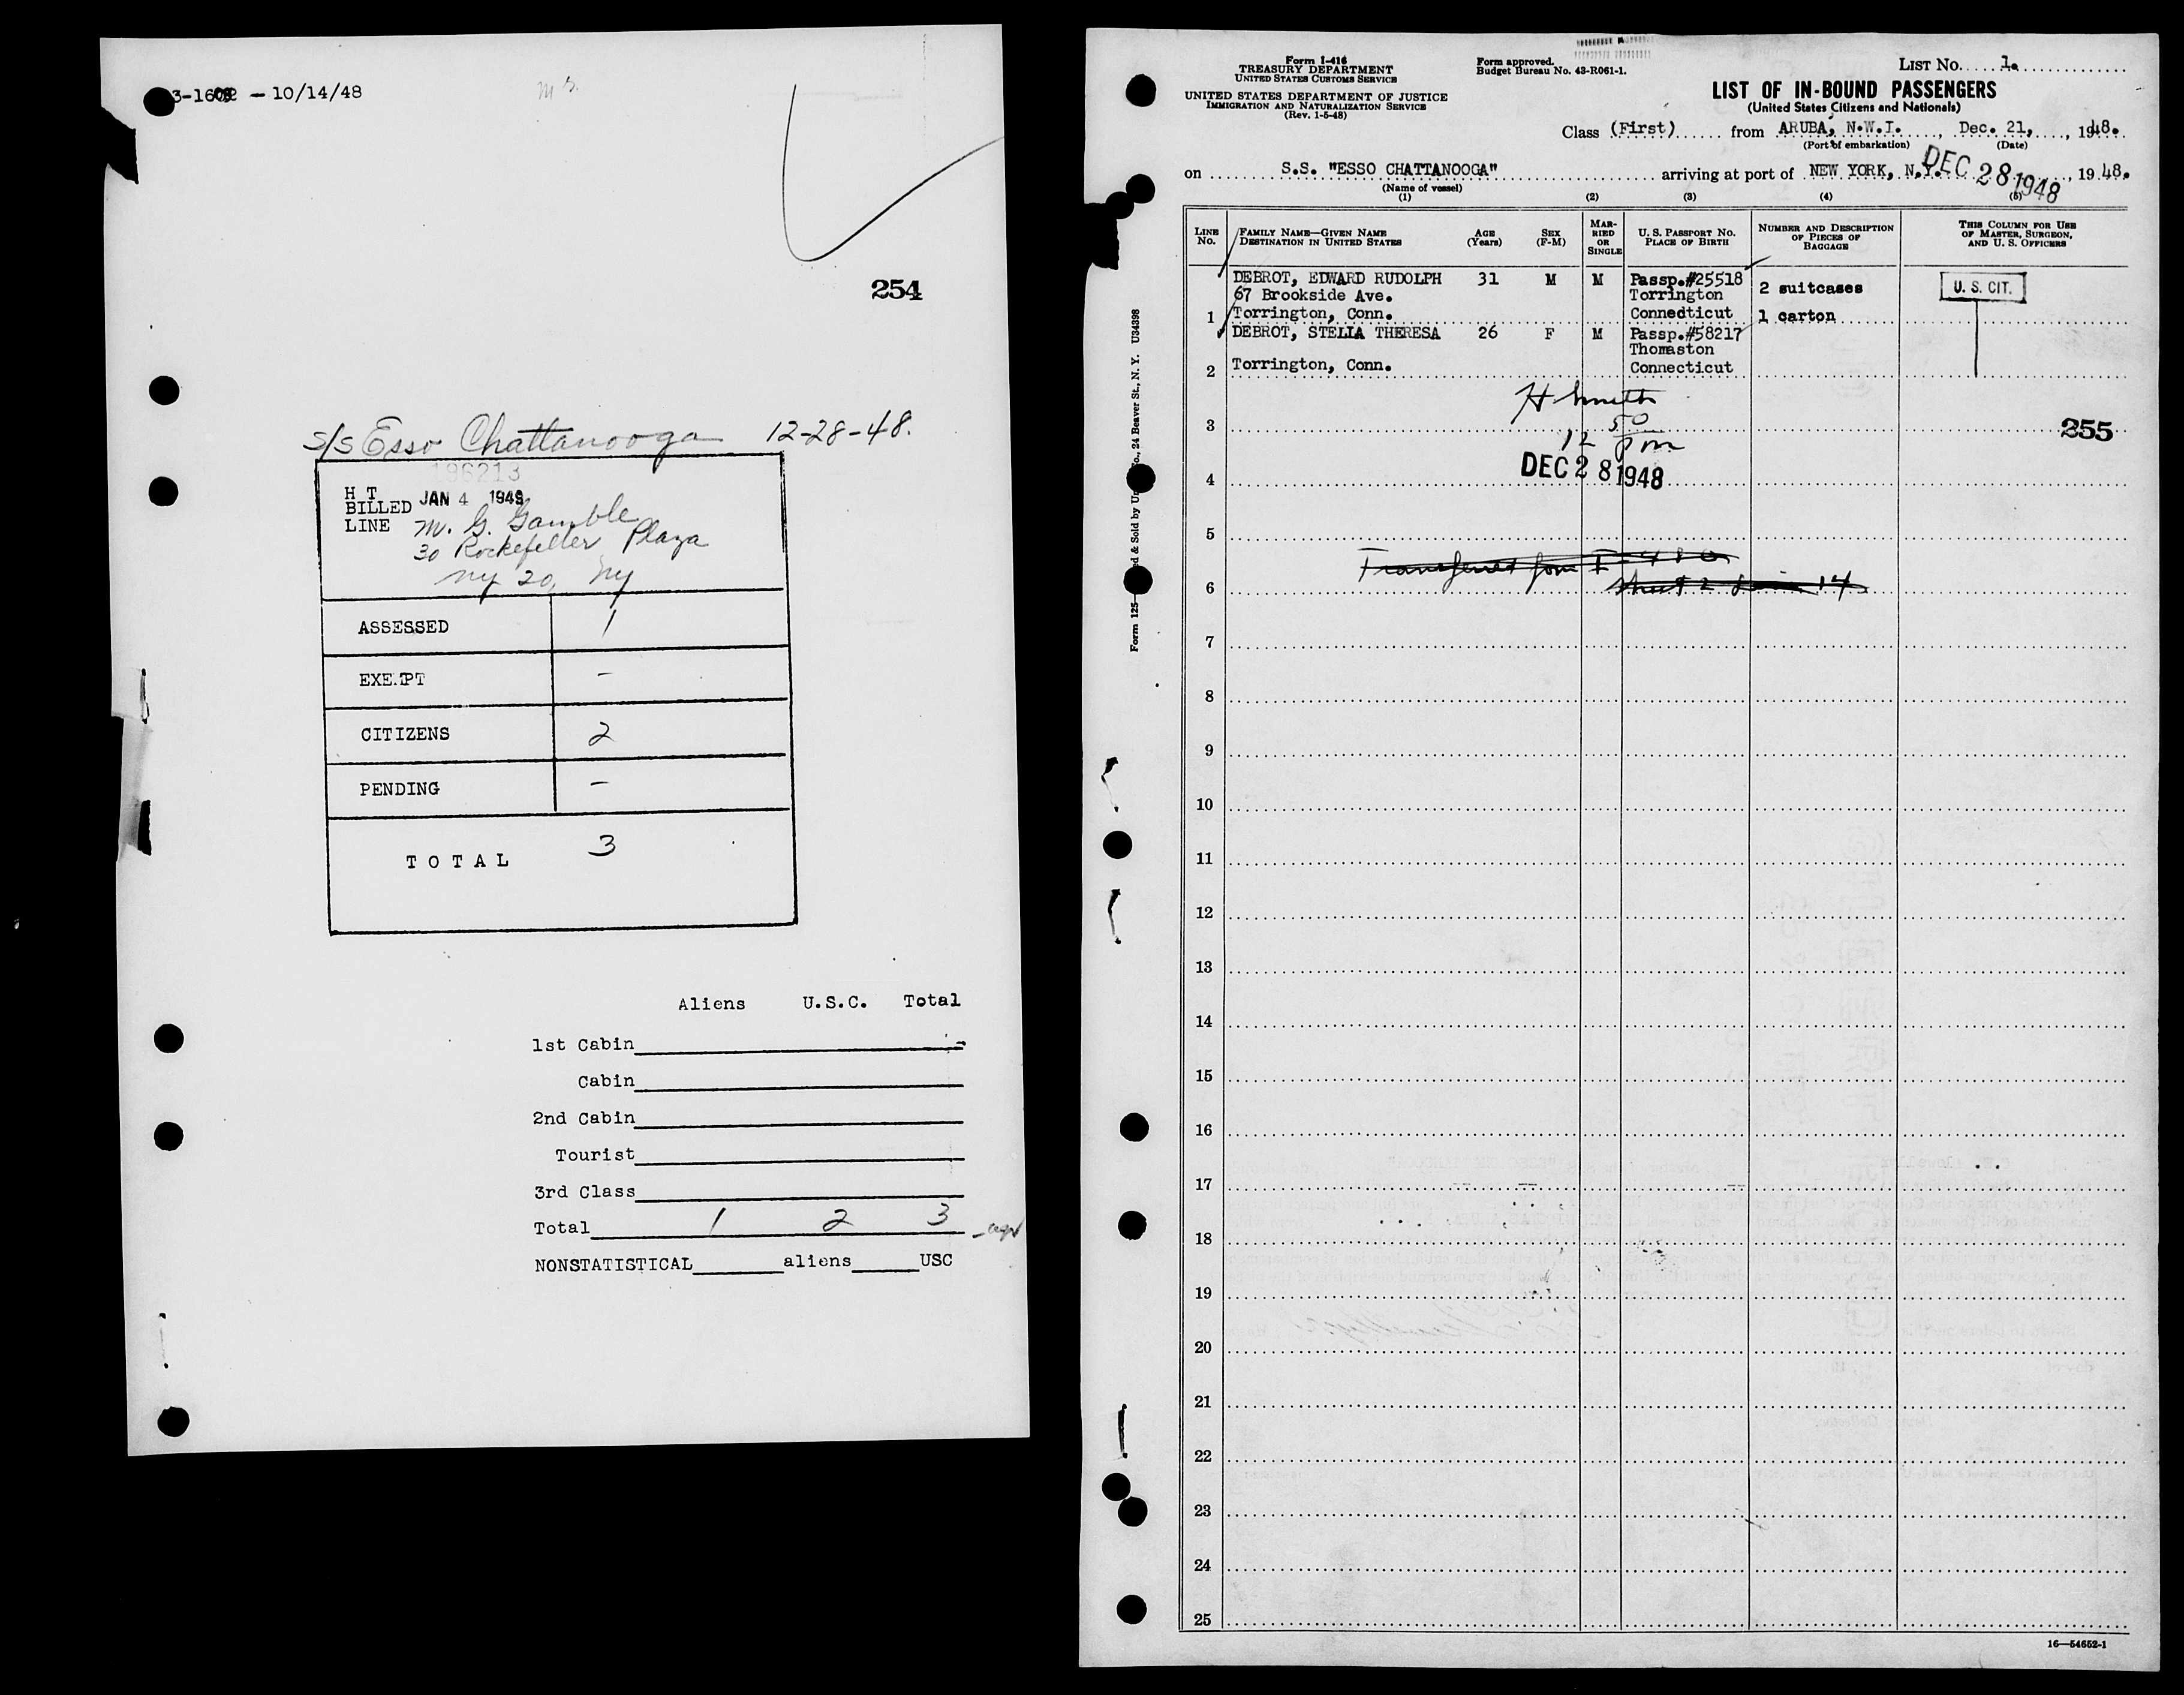 3-1602 - 10/14/48
254
S/S Esso Chattanooga 12-28-48.
196213
H T
BILLED JAN 4 1949
LINE M. G. Gamble
30 Rockefeller Plaza
NY 20, NY
ASSESSED 1
EXEMPT -
CITIZENS 2
PENDING -
TOTAL 3
Aliens U.S.C. Total
1st Cabin
Cabin
2nd Cabin
Tourist
3rd Class
Total 1 2 3
NONSTATISTICAL aliens USC
Form I-416
TREASURY DEPARTMENT
UNITED STATES CUSTOMS SERVICE
UNITED STATES DEPARTMENT OF JUSTICE
IMMIGRATION AND NATURALIZATION SERVICE
(Rev. 1-5-48)
Form approved.
Budget Bureau No. 43-R061-1.
LIST No. 1.
LIST OF IN-BOUND PASSENGERS
(United States Citizens and Nationals)
Class (First) from ARUBA, N.W.I., Dec. 21, 1948.
(Port of embarkation) (Date)
on S.S. "ESSO CHATTANOOGA" arriving at port of NEW YORK, N.Y. DEC 28 1948, 1948.
(Name of vessel)
(1) (2) (3) (4) (5)
LINE No. FAMILY NAME—GIVEN NAME DESTINATION IN UNITED STATES AGE (Years) SEX (F-M) MARRIED OR SINGLE U. S. PASSPORT NO. PLACE OF BIRTH NUMBER AND DESCRIPTION OF PIECES OF BAGGAGE THIS COLUMN FOR USE OF MASTER, SURGEON, AND U. S. OFFICERS
DEBROT, EDWARD RUDOLPH 31 M M Passp.#25518 2 suitcases U. S. CIT.
67 Brookside Ave. Torrington
1 Torrington, Conn. Connedticut 1 carton
DEBROT, STELLA THERESA 26 F M Passp.#58217
Thomaston
2 Torrington, Conn. Connecticut
H Smith
3 12 50 pm 255
4 DEC 28 1948
5
Transferred from I-480
6 Sheet 2 Line 14
7
8
9
10
11
12
13
14
15
16
17
18
19
20
21
22
23
24
25
16—54652-1